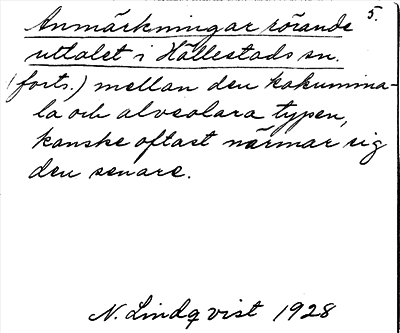 5.
Anmärkningar rörande
uttalet i Hällestads sn.
(forts.) mellan den kakumina-
la och alveolara typen,
kanske oftast närmar sig
den senare.
N. Lindqvist 1928